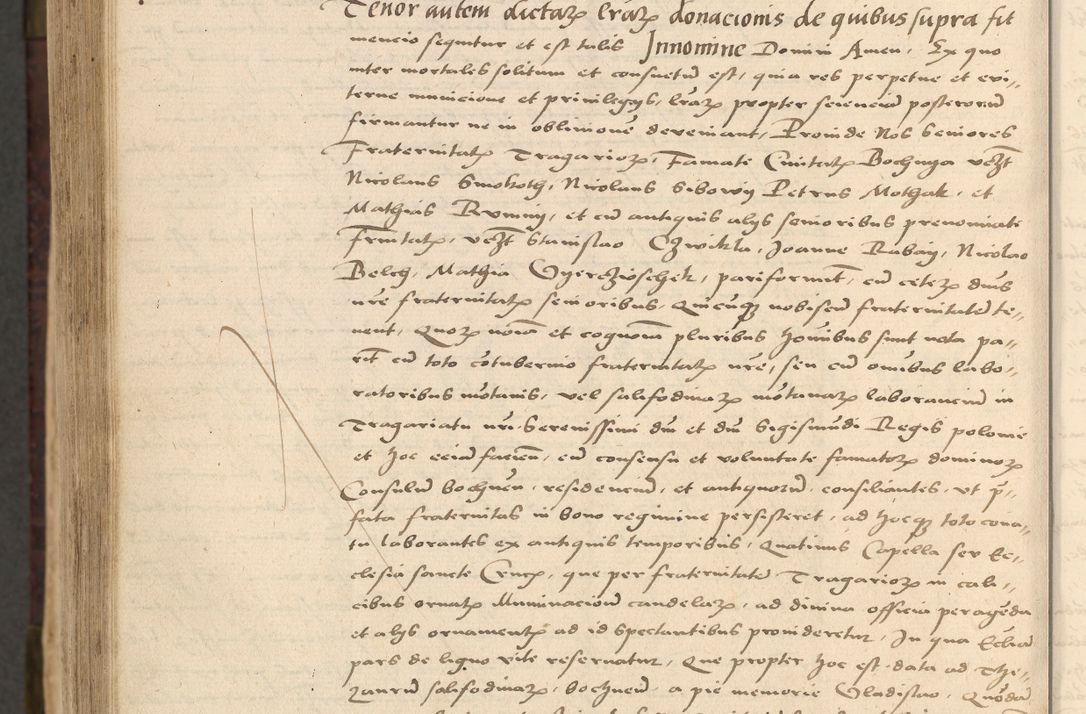 Tenor autem dictaꝝ lr̃aꝝ donacionis de quibus supra fit
mencio sequitur et est talis Jnnomine Domini Amen, Ex quo
inter mortales solitum et consuetũ est, quia res perpetue et evi„
terne municione et privilegijs, lr̃aꝝ propter scienciã posterorum
firmantur ne in oblivionẽ deveniant, Proinde Nos Seniores
Fraternitatꝭ Tragarioꝝ, Famate Civitatꝭ Bochnya vcꝫt
Nicolaus Smokoth, Nicolaus Sibowij Petrus Mothak, et
Mathias Rvminij, et cũ antiquis alijs senioribus prenominati
fr̃nitatꝭ, vcꝫt Stanislao Czwickla, Joanne Rabaij, Nicolao
Belch, Mathia Vyerczioschek, pariformit̃, cũ ceteꝝ dñis
nr̃e fraternitatꝭ senioribus, Quicũqꝫ nobiscũ fraternitatẽ te„
nent, Quoꝝ nõia et cognoĩa pluribus hoĩnibus sunt nota pa„
rit̃ cũ toto cõtubernio fraternitatꝭ nr̃e, seu cũ omĩbus labo„
ratoribus mõtanis, vel salifodinaꝝ mõtanaꝝ laboranciũ in
Tragariatu nr̃i Serenissimi dñi et dñi Sigismũdi Regis polonie
et hoc eciã facieñ, cũ consensu et voluntate famatoꝝ dominoꝝ
Consulũ bochneñ, residenciũ, et antiquorũ, consiliantes, vt p̃„
fata fraternitas in bono regimine persisteret, ad hocqꝫ toto cona„
tu laborantes ex antiquis temporibus, Quatinus Capella seu Ec„
clesia sancte Crucꝭ, que per fraternitatẽ Tragarioꝝ in cali„
cibus ornatꝭ Illuminacionũ candelaꝝ, ad divina officia peragẽda
et alijs ornamentꝭ ad id spectantibus provideretur, In qua Ecclia
pars de ligno vite reservatur, Que propter hoc est data ad The„
zaurũ salifodinaꝝ, bochneñ, a pie memorie Vladislao, Quõdã